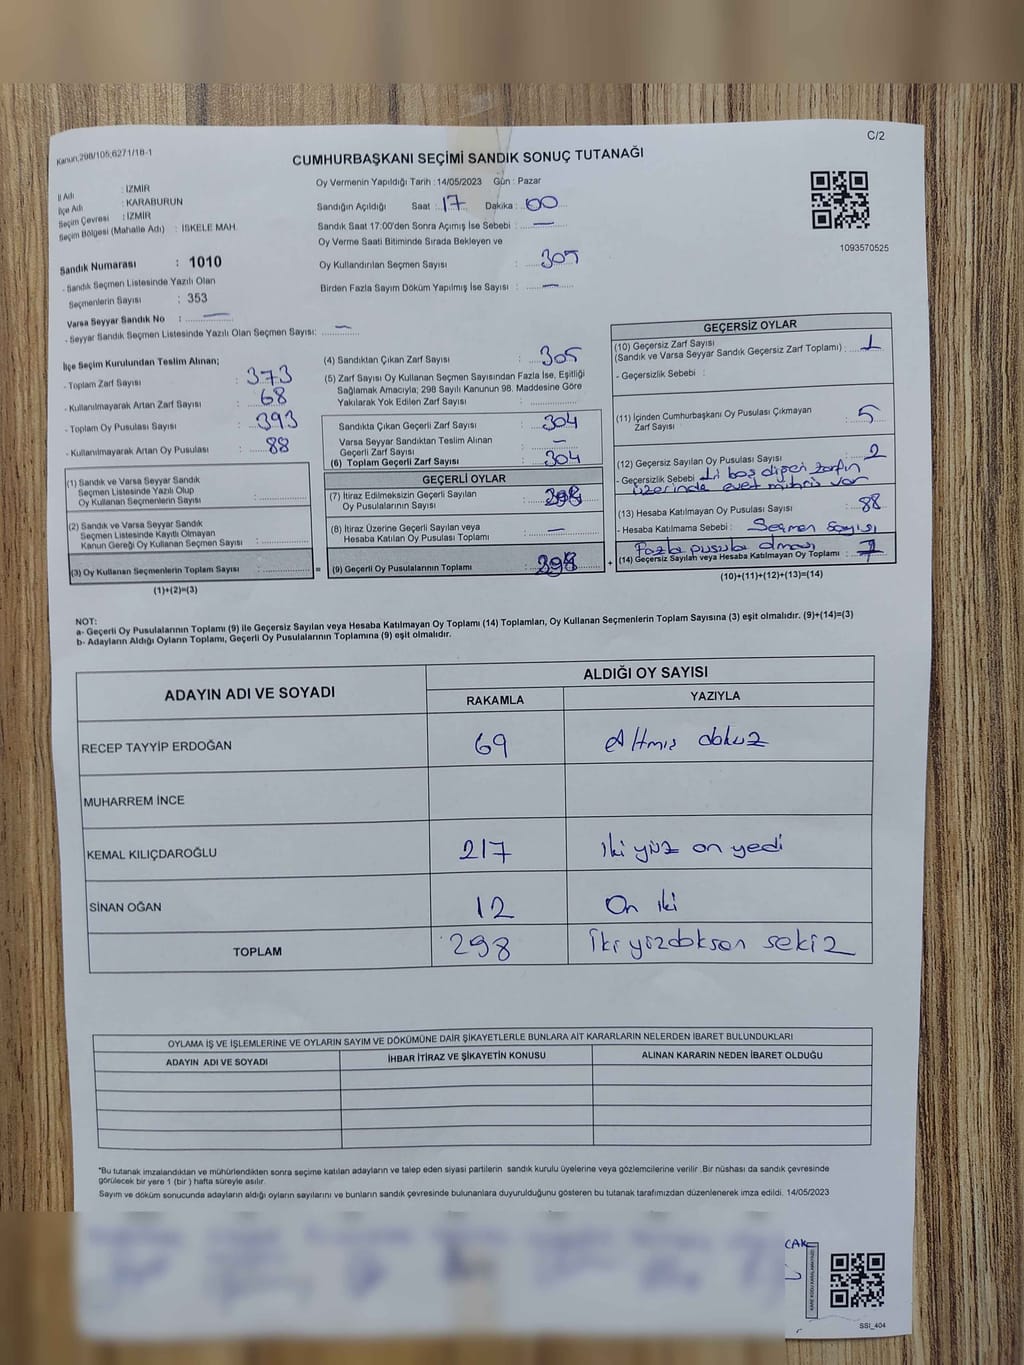 C/2
Kanun;298/105;6271/18-1
CUMHURBAŞKANI SEÇİMİ SANDIK SONUÇ TUTANAĞI
İl Adı : İZMİR
İlçe Adı : KARABURUN
Seçim Çevresi : İZMİR
Seçim Bölgesi (Mahalle Adı) : İSKELE MAH.
Sandık Numarası : 1010
- Sandık Seçmen Listesinde Yazılı Olan
Seçmenlerin Sayısı : 353
Varsa Seyyar Sandık No : —
- Seyyar Sandık Seçmen Listesinde Yazılı Olan Seçmen Sayısı: —
Oy Vermenin Yapıldığı Tarih : 14/05/2023 Gün : Pazar
Sandığın Açıldığı Saat : 17 Dakika : 00
Sandık Saat 17:00'den Sonra Açımış İse Sebebi : —
Oy Verme Saati Bitiminde Sırada Bekleyen ve
Oy Kullandırılan Seçmen Sayısı : 305
Birden Fazla Sayım Döküm Yapılmış İse Sayısı : —
1093570525
İlçe Seçim Kurulundan Teslim Alınan;
- Toplam Zarf Sayısı : 373
- Kullanılmayarak Artan Zarf Sayısı : 68
- Toplam Oy Pusulası Sayısı : 393
- Kullanılmayarak Artan Oy Pusulası : 88
(1) Sandık ve Varsa Seyyar Sandık
Seçmen Listesinde Yazılı Olup
Oy Kullanan Seçmenlerin Sayısı :
(2) Sandık ve Varsa Seyyar Sandık
Seçmen Listesinde Kayıtlı Olmayan
Kanun Gereği Oy Kullanan Seçmen Sayısı :
(3) Oy Kullanan Seçmenlerin Toplam Sayısı : =
(1)+(2)=(3)
(4) Sandıktan Çıkan Zarf Sayısı : 305
(5) Zarf Sayısı Oy Kullanan Seçmen Sayısından Fazla İse, Eşitliği
Sağlamak Amacıyla; 298 Sayılı Kanunun 98. Maddesine Göre
Yakılarak Yok Edilen Zarf Sayısı :
Sandıkta Çıkan Geçerli Zarf Sayısı : 304
Varsa Seyyar Sandıktan Teslim Alınan
Geçerli Zarf Sayısı : —
(6) Toplam Geçerli Zarf Sayısı : 304
GEÇERLİ OYLAR
(7) İtiraz Edilmeksizin Geçerli Sayılan
Oy Pusulalarının Sayısı : 298
(8) İtiraz Üzerine Geçerli Sayılan veya
Hesaba Katılan Oy Pusulası Toplamı : —
(9) Geçerli Oy Pusulalarının Toplamı : 298 +
GEÇERSİZ OYLAR
(10) Geçersiz Zarf Sayısı
(Sandık ve Varsa Seyyar Sandık Geçersiz Zarf Toplamı) : 1
- Geçersizlik Sebebi :
(11) İçinden Cumhurbaşkanı Oy Pusulası Çıkmayan
Zarf Sayısı : 5
(12) Geçersiz Sayılan Oy Pusulası Sayısı : 2
- Geçersizlik Sebebi boş diğeri zarfın
üzerinde evet mührü var
(13) Hesaba Katılmayan Oy Pusulası Sayısı : 88
- Hesaba Katılmama Sebebi : Seçmen Sayısı
Fazla pusula olması
(14) Geçersiz Sayılan veya Hesaba Katılmayan Oy Toplamı : 7
(10)+(11)+(12)+(13)=(14)
NOT:
a- Geçerli Oy Pusulalarının Toplamı (9) ile Geçersiz Sayılan veya Hesaba Katılmayan Oy Toplamı (14) Toplamları, Oy Kullanan Seçmenlerin Toplam Sayısına (3) eşit olmalıdır. (9)+(14)=(3)
b- Adayların Aldığı Oyların Toplamı, Geçerli Oy Pusulalarının Toplamına (9) eşit olmalıdır.
ADAYIN ADI VE SOYADI ALDIĞI OY SAYISI
RAKAMLA YAZIYLA
RECEP TAYYİP ERDOĞAN 69 Altmış dokuz
MUHARREM İNCE
KEMAL KILIÇDAROĞLU 217 İki yüz on yedi
SİNAN OĞAN 12 On iki
TOPLAM 298 İki yüzdoksan sekiz
OYLAMA İŞ VE İŞLEMLERİNE VE OYLARIN SAYIM VE DÖKÜMÜNE DAİR ŞİKAYETLERLE BUNLARA AİT KARARLARIN NELERDEN İBARET BULUNDUKLARI
ADAYIN ADI VE SOYADI İHBAR İTİRAZ VE ŞİKAYETİN KONUSU ALINAN KARARIN NEDEN İBARET OLDUĞU
"Bu tutanak imzalandıktan ve mühürlendikten sonra seçime katılan adayların ve talep eden siyasi partilerin sandık kurulu üyelerine veya gözlemcilerine verilir .Bir nüshası da sandık çevresinde
görülecek bir yere 1 (bir ) hafta süreyle asılır.
Sayım ve döküm sonucunda adayların aldığı oyların sayılarını ve bunların sandık çevresinde bulunanlara duyurulduğunu gösteren bu tutanak tarafımızdan düzenlenerek imza edildi. 14/05/2023
CAK
SSİ_404